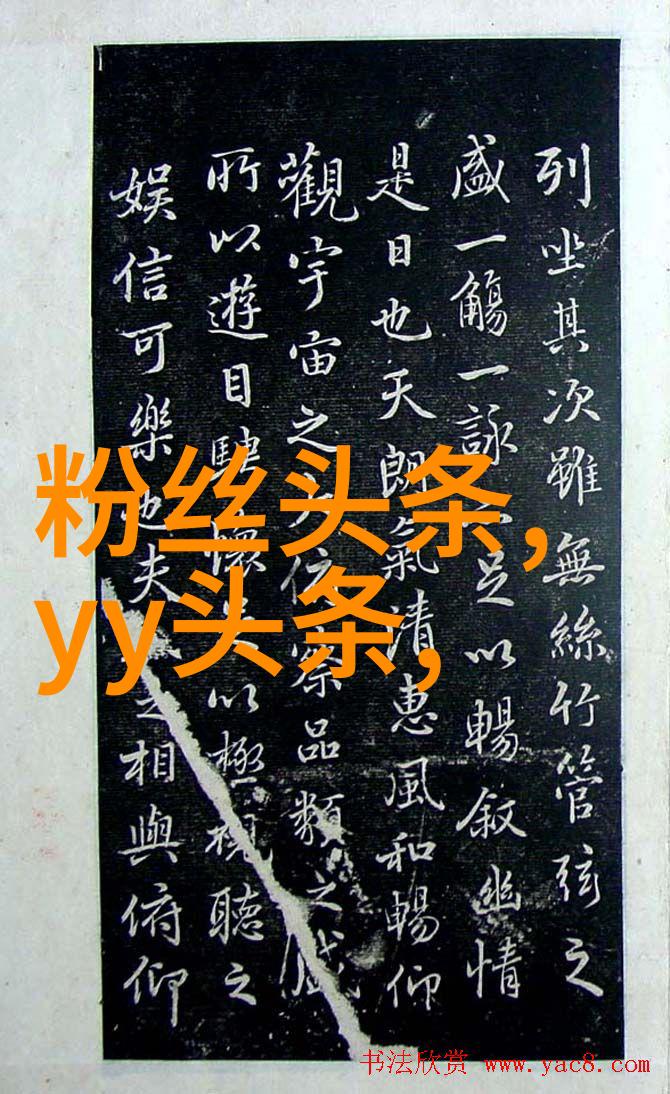 列坐其次雖無絲竹管弦之
盛一觴一詠足以暢叙幽情
是日也天朗氣清惠風和暢仰
觀宇宙之大俯察品類之盛
所以遊目騁懷足以極視聽之
娱信可樂也夫之相與俯仰
粉丝头条,
yy头条,
书法欣赏 www.yac8.com